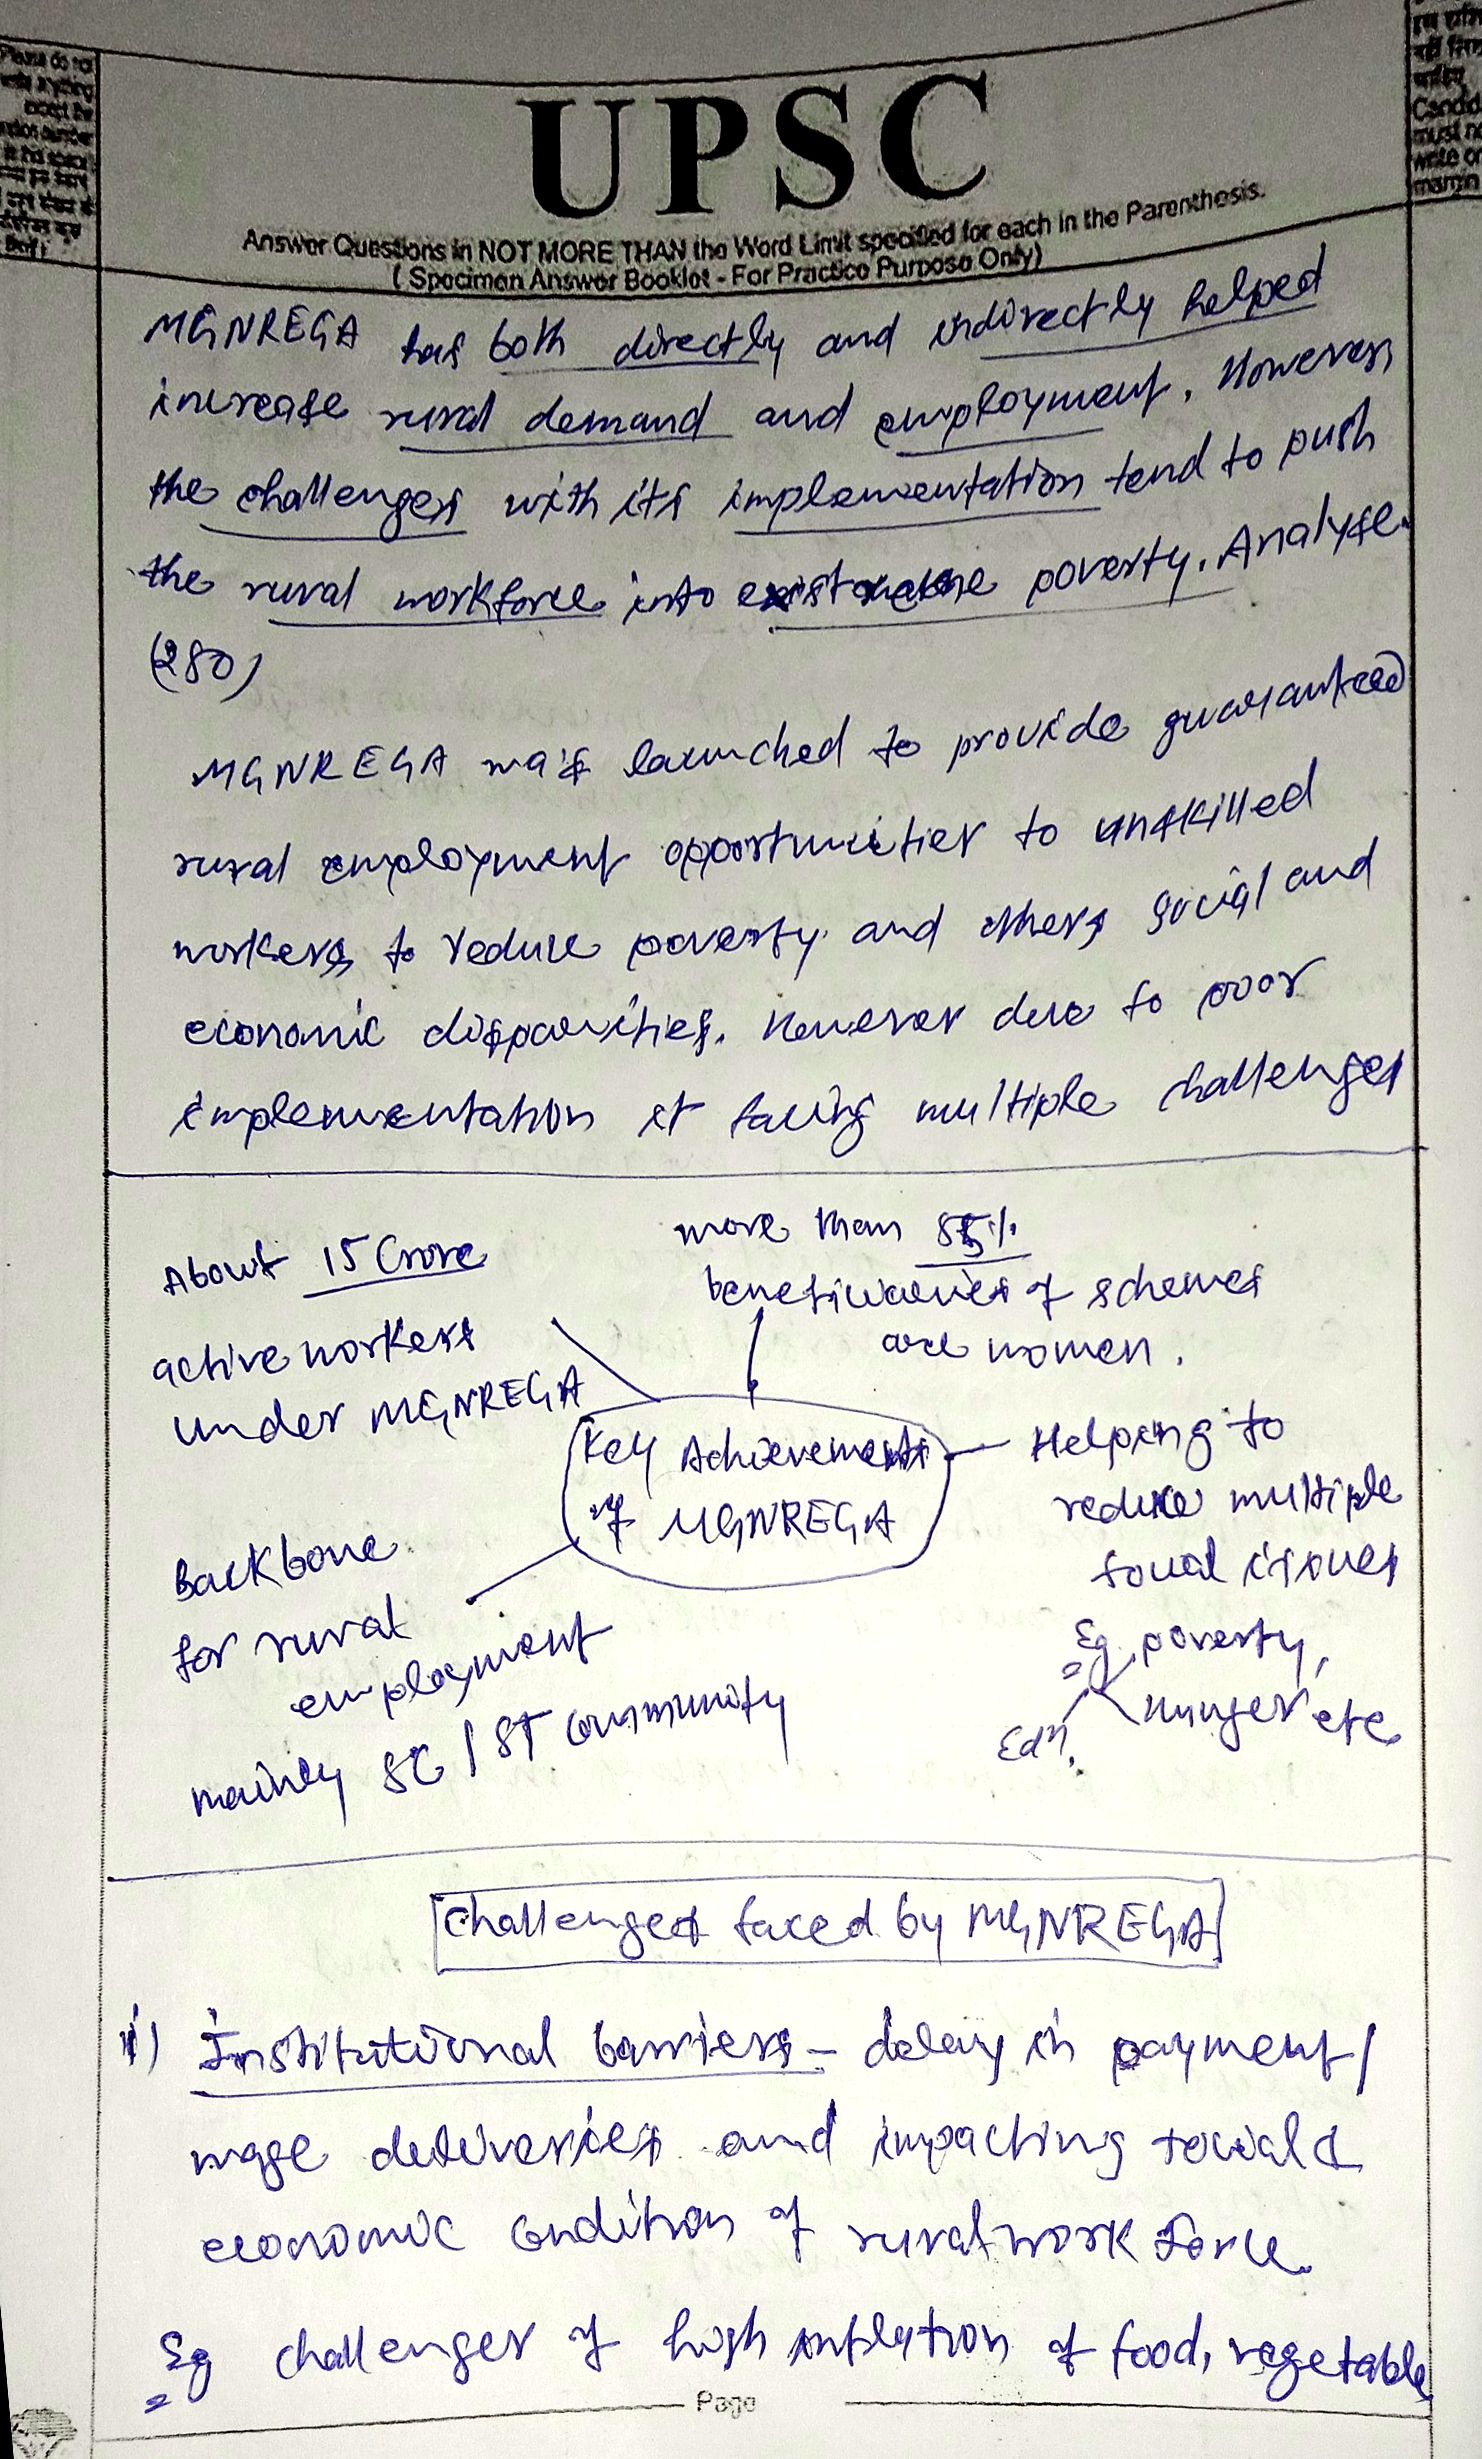 Please do not
write anything
except the
question number
in this space
Candid
must no
write on
margin
UPSC
Answer Questions in NOT MORE THAN the Word Limit specified for each in the Parenthesis.
( Specimen Answer Booklet - For Practice Purpose Only)
MGNREGA has both directly and indirectly helped
increase rural demand and employment. However,
the challenges with its implementation tend to push
the rural workforce into poverty. Analyse.
(280)
MGNREGA was launched to provide guaranteed
rural employment opportunities to unskilled
workers, to reduce poverty and others social and
economic disparities. However due to poor
implementation it facing multiple challenges
About 15 Crore
active workers
under MGNREGA
more than 85%
beneficiaries of schemes
are women.
Key Achievements
of MGNREGA
Helping to
reduce multiple
social issues
Eg poverty,
hunger etc
Edn.
Backbone
for rural
employment
mainly SC / ST community
Challenges faced by MGNREGA
i) Institutional barriers - delay in payment/
wage deliveries and impacting social &
economic condition of rural work force.
Eg challenges of high inflation of food, vegetable
Page